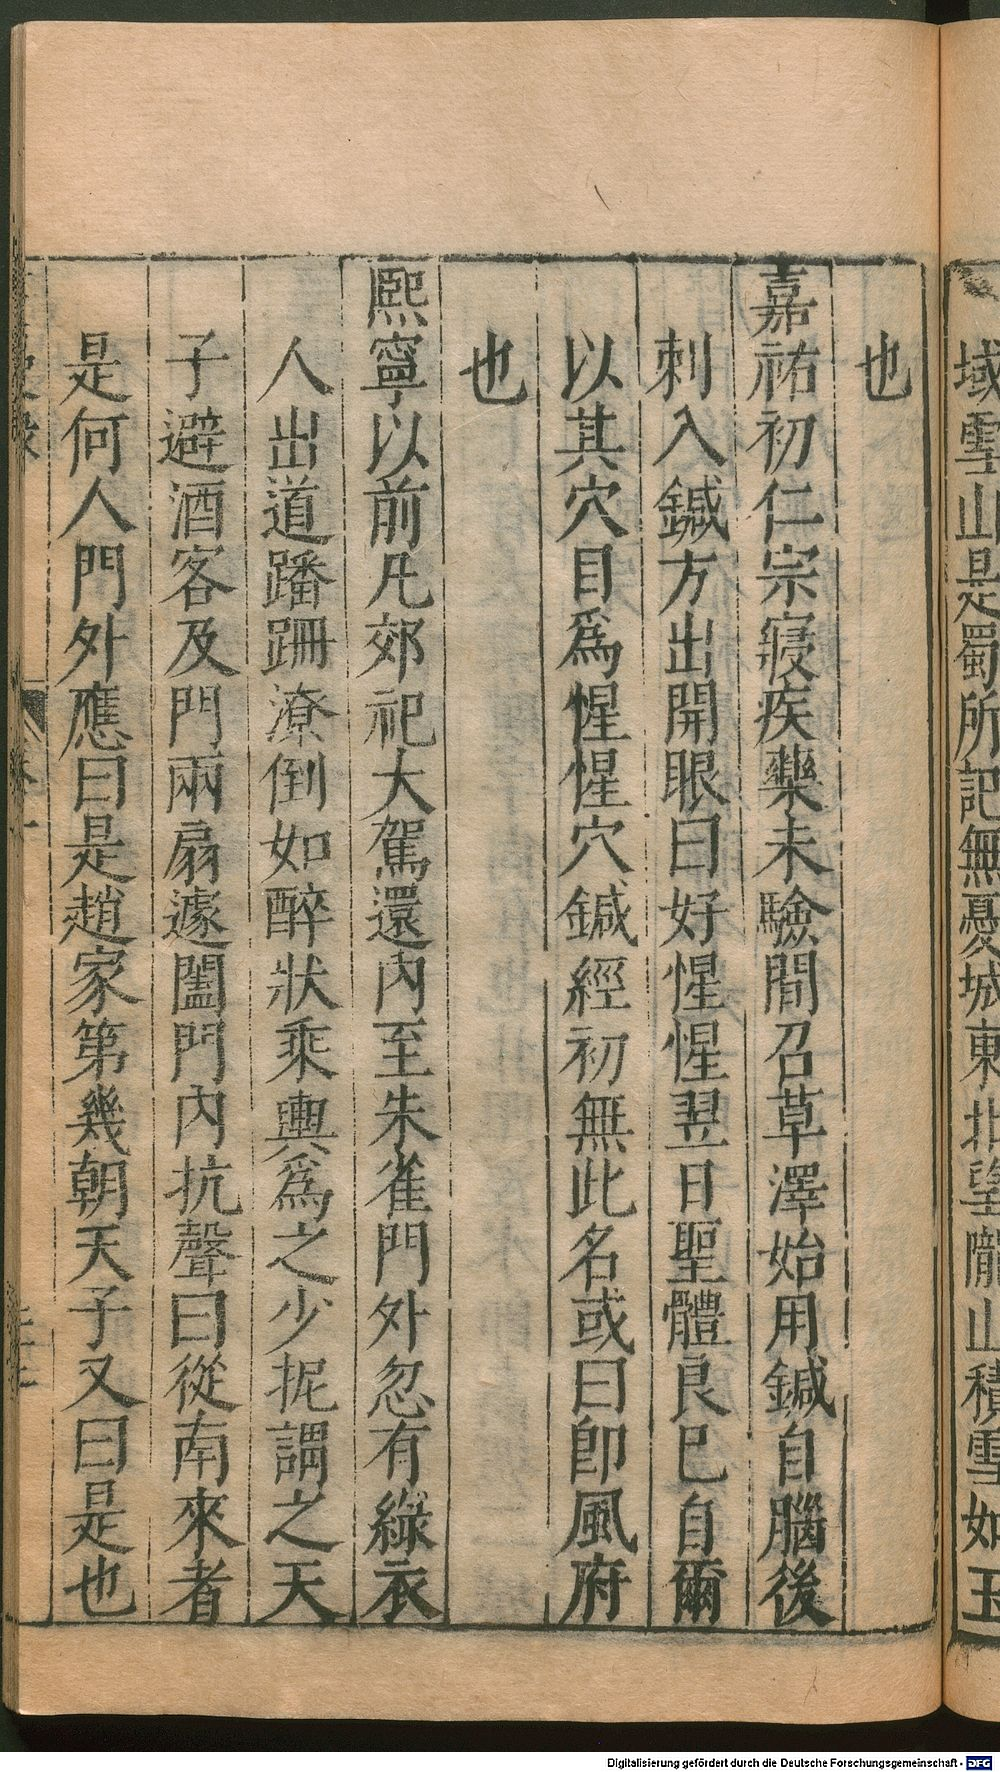 域雪山是蜀所記無憂城東北望隴山積雪如玉
也
嘉祐初仁宗寢疾藥未驗間召草澤始用鍼自腦後
刺入鍼方出開眼曰好惺惺翌日聖體良已自爾
以其穴目爲惺惺穴鍼經初無此名或曰即風府
也
熙寧以前凡郊祀大駕還內至朱雀門外忽有綠衣
人出道蹣跚潦倒如醉狀乘輿爲之少抳謂之天
子避酒客及門兩扇遽闔門內抗聲曰從南來者
是何人門外應曰是趙家第幾朝天子又曰是也
Digitalisierung gefördert durch die Deutsche Forschungsgemeinschaft - DFG